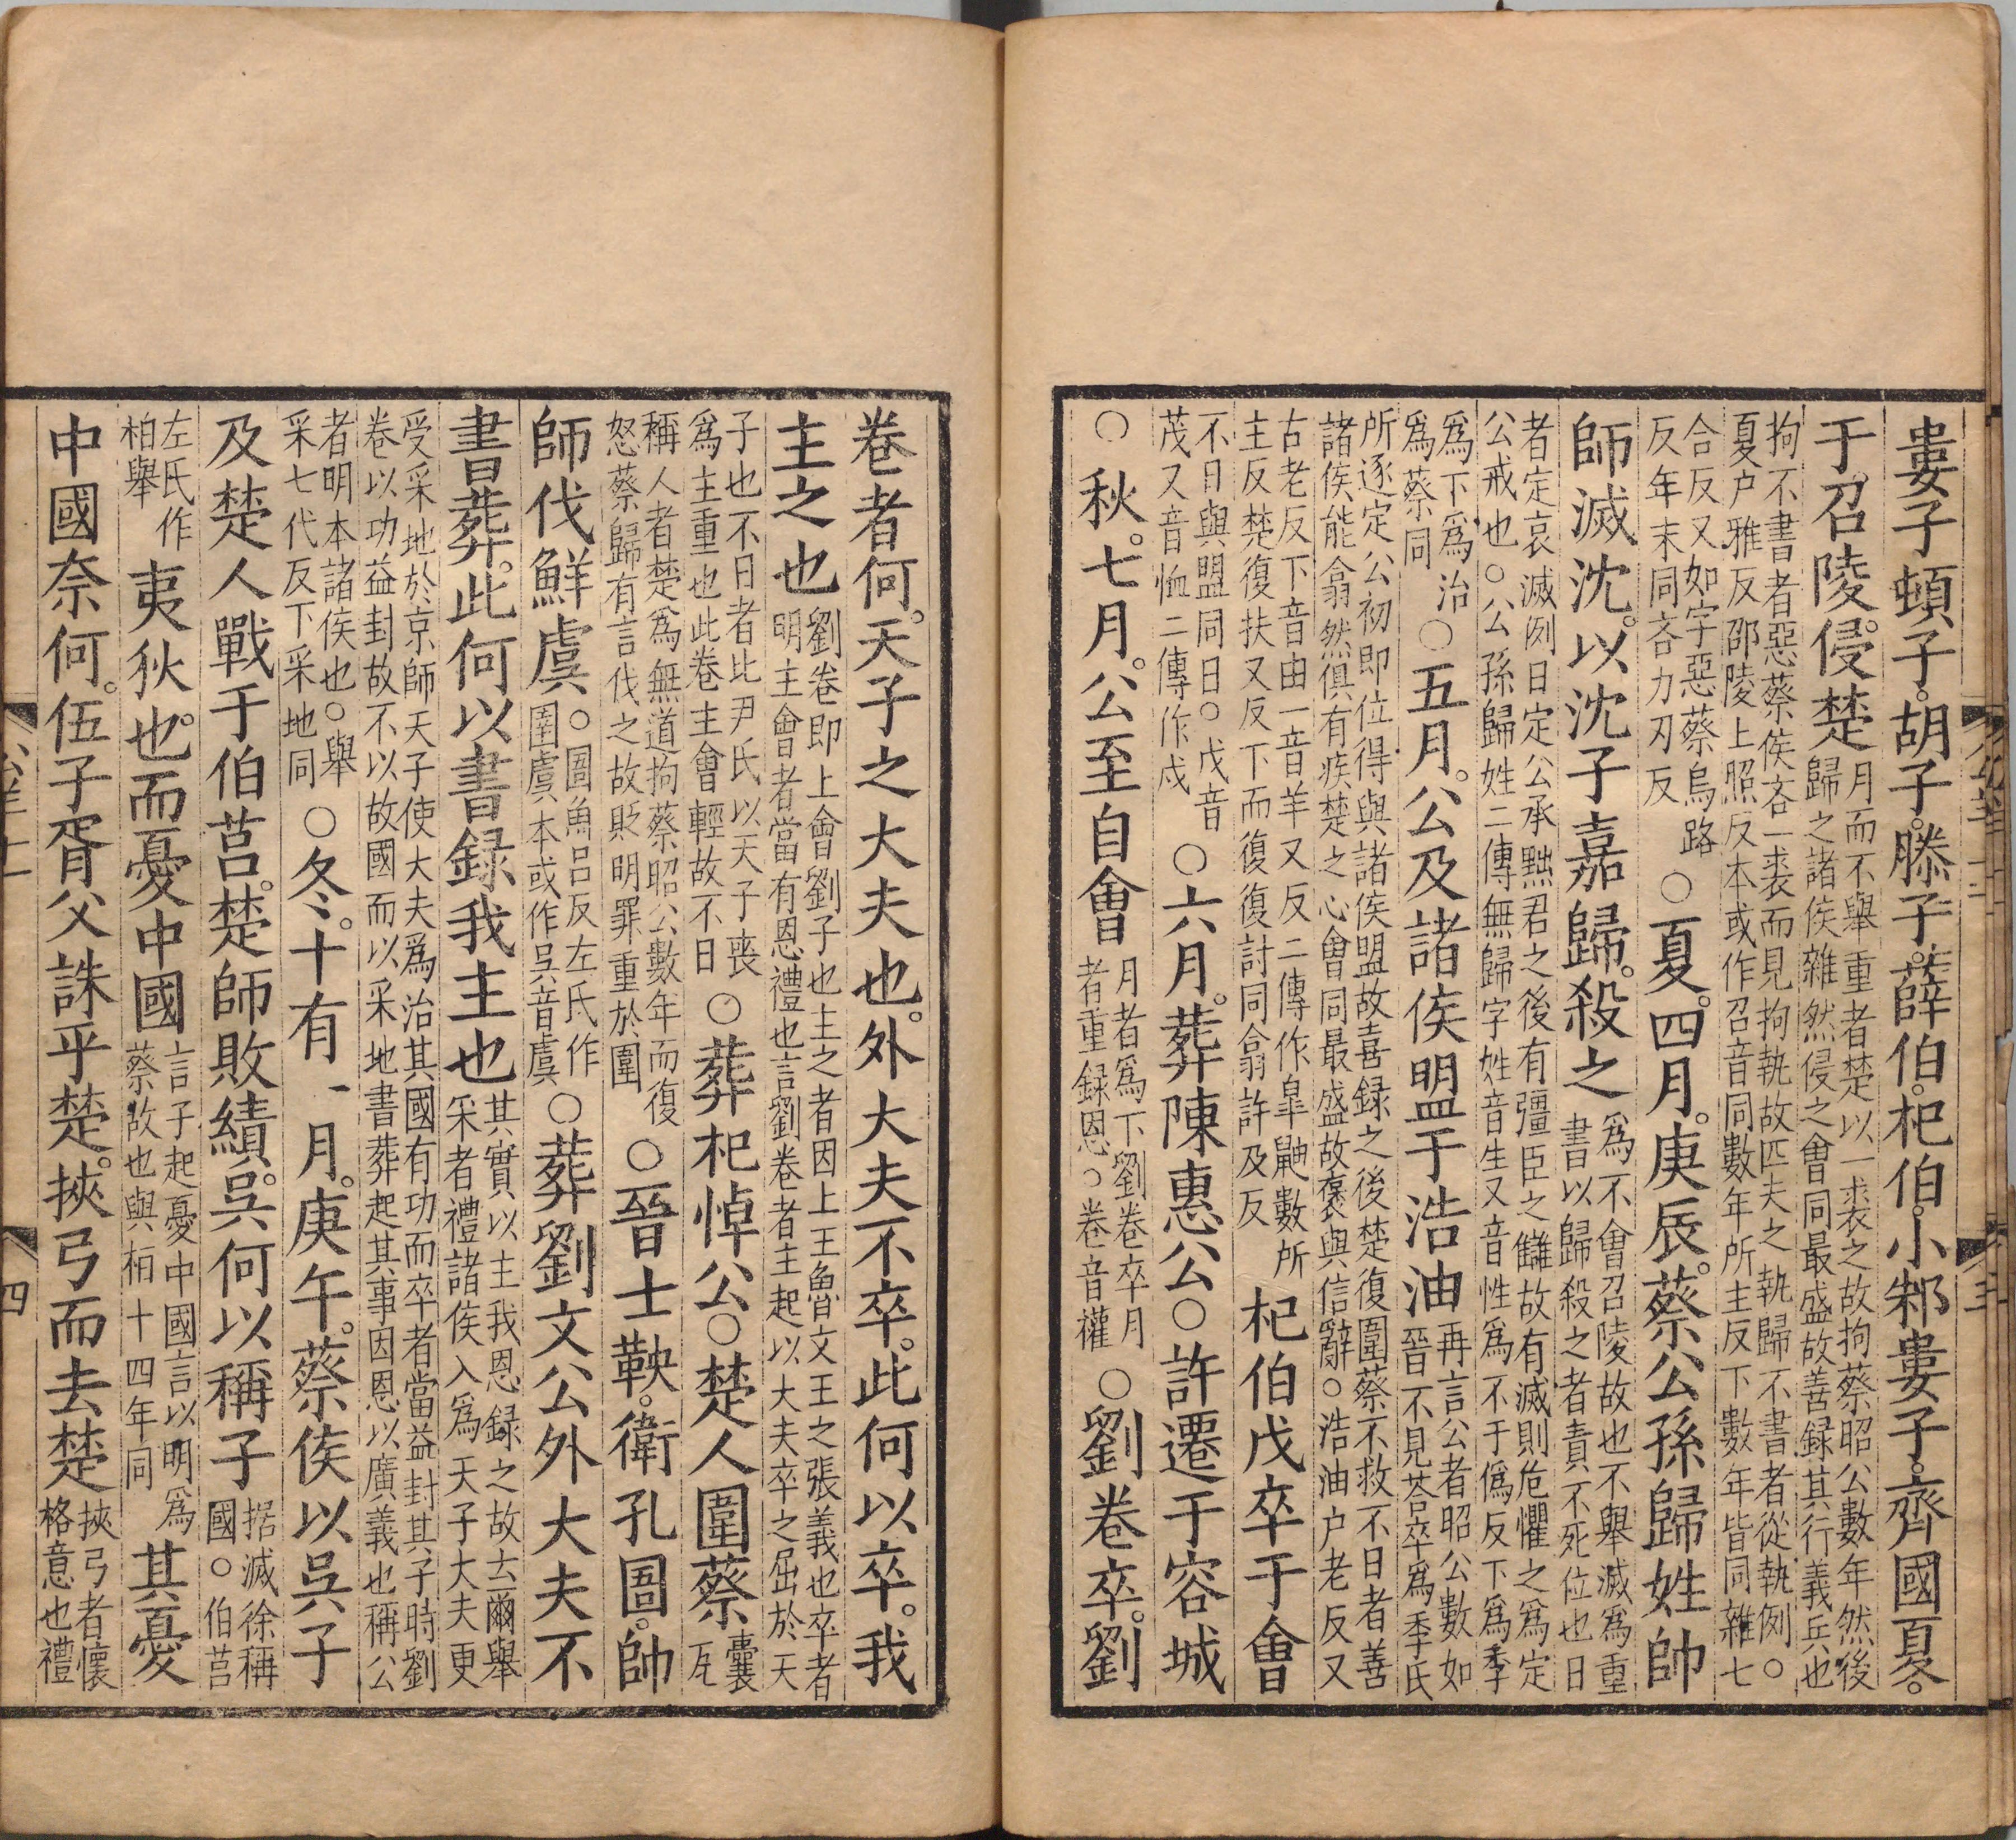 婁子頓子。胡子。滕子。薛伯。杞伯。小邾婁子。齊國夏。
于。召陵。侵楚
月而不舉重者楚以一裘之故拘蔡昭公數年然後
歸之諸侯雜然侵之會同最盛故善録其行義兵也
拘不書者惡蔡侯吝一裘而見拘執故匹夫之執歸不書者從執例○
夏户雅反邵陵上照反本或作召音同數年所主反下數年皆同雜七
合反又如字惡蔡烏路
反年末同吝力刃反
○夏。四月。庚辰。蔡公孫歸姓帥
師滅沈。以沈子嘉歸。殺之
爲不會召陵故也不舉滅爲重
書以歸殺之者責不死位也日
者定哀滅例日定公承黜君之後有彊臣之讎故有滅則危懼之爲定
公戒也○公孫歸姓二傳無歸字姓音生又音性爲不于僞反下爲季
爲下爲治
爲蔡同
○五月。公及諸侯盟于浩油
再言公者昭公數如
晉不見荅卒爲季氏
所逐定公初即位得與諸侯盟故喜録之後楚復圍蔡不救不日者善
諸侯能翕然俱有疾楚之心會同最盛故褒與信辭○浩油户老反又
古老反下音由一音羊又反二傳作臯鼬數所
主反楚復扶又反下而復復討同翕許及反
杞伯戊卒于會
不日與盟同日○戊音
茂又音恤二傳作戍
○六月。葬陳惠公○許遷于容城
○秋。七月。公至自會
月者爲下劉卷卒月
者重録恩○卷音權
○劉卷卒。劉
卷者何。天子之大夫也。外大夫不卒。此何以卒。我
主之也
劉卷即上會劉子也主之者因上王魯文王之張義也卒者
明主會者當有恩禮也言劉卷者主起以大夫卒之屈於天
子也不日者比尹氏以天子喪
爲主重也此卷主會輕故不日
○葬杞悼公○楚人圍蔡
囊瓦
稱人者楚爲無道拘蔡昭公數年而復
怒蔡歸有言伐之故貶明罪重於圍
○晉士鞅。衛孔圄。帥
師伐鮮虞
○圄魚吕反左氏作
圉虞本或作吳音虞
○葬劉文公外大夫不
書葬。此何以書録我主也
其實以主我恩録之故云爾舉
采者禮諸侯入爲天子大夫更
受采地於京師天子使大夫爲治其國有功而卒者當益封其子時劉
卷以功益封故不以故國而以采地書葬起其事因恩以廣義也稱公
者明本諸侯也○舉
采七代反下采地同
○冬。十有一月。庚午。蔡侯以吳子
及楚人戰于伯莒。楚師敗績。吳何以稱子
据滅徐稱
國○伯莒
左氏作
柏舉
夷狄也。而憂中國
言子起憂中國言以明爲
蔡故也與桓十四年同
其憂
中國奈何。伍子胥父誅乎楚。挾弓而去楚
挾弓者懷
格意也禮
四